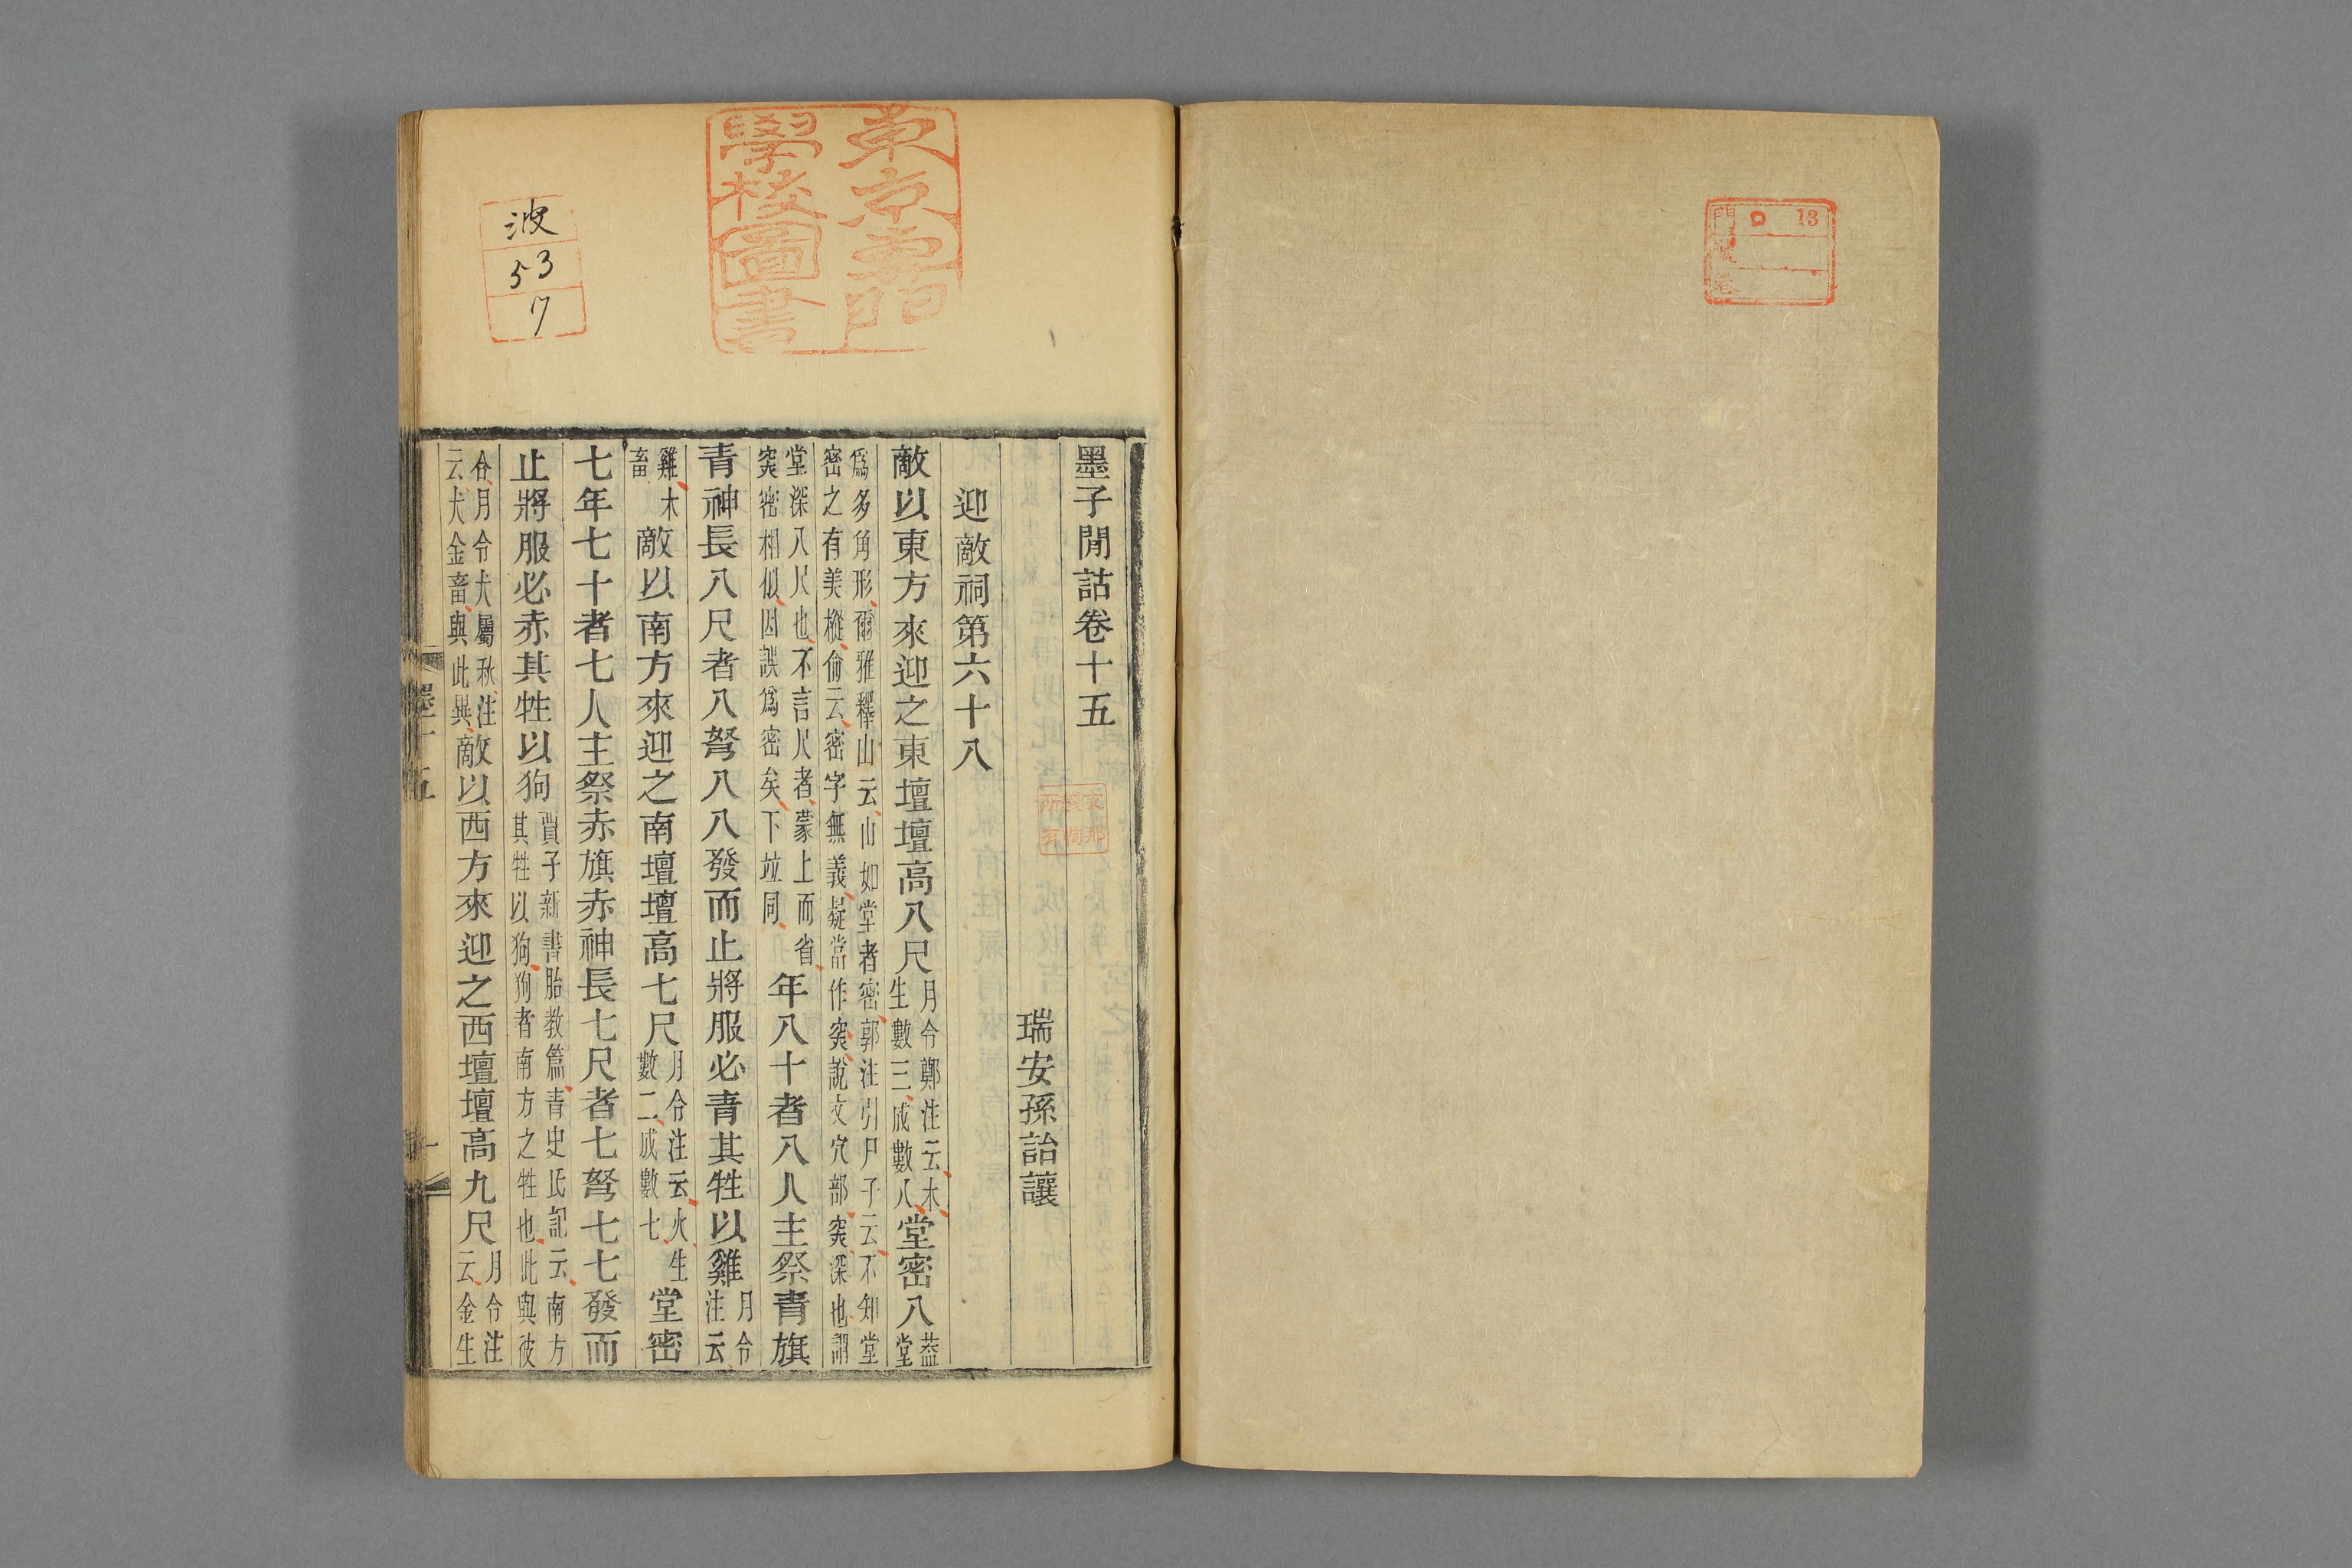 門 ロ 13
號
卷
東京專門
學校圖書
波
53
7
墨子閒詁卷十五
瑞安孫詒讓
迎敵祠第六十八
敵以東方來迎之東壇壇高八尺月令鄭注云木生數三成數八堂密八葢堂
爲多角形爾雅釋山云山如堂者密郭注引尸子云不知堂
密之有美樅俞云密字無義疑當作突說文穴部突深也謂
堂深八尺也不言尺者蒙上而省突密相似因誤爲密矣下竝同年八十者八人主祭青旗
青神長八尺者八弩八八發而止將服必青其牲以雞月令注云
雞木畜敵以南方來迎之南壇壇高七尺月令注云火生數二成數七堂密
七年七十者七人主祭赤旗赤神長七尺者七弩七七發而
止將服必赤其牲以狗賈子新書胎教篇青史氏記云南方其牲以狗狗者南方之牲也此與彼
合月令犬屬秋注云犬金畜與此異敵以西方來迎之西壇壇高九尺月令注云金生
墨十五
一